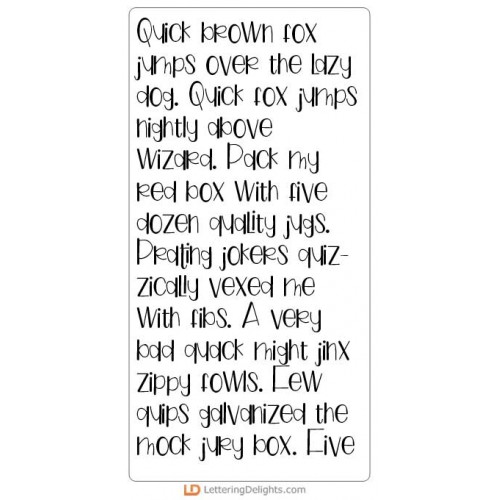 Quick brown fox
jumps over the lazy
dog. Quick fox jumps
nightly above
Wizard. Pack my
red box With five
dozen quality jugs.
Prating jokers quiz-
zically vexed me
With fibs. A very
bad quack might jinx
zippy fowls. Few
quips galvanized the
mock jury box. Five
LD LetteringDelights.com